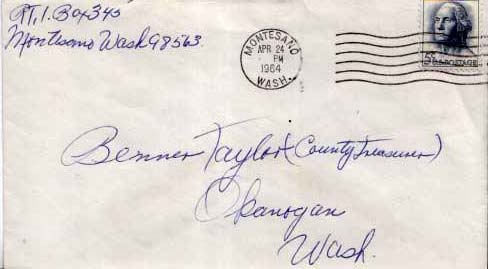 Rt. 1. Box 345
Montesano Wash 98563.
MONTESANO
APR 24
PM
1964
WASH.
5¢ U.S. POSTAGE
Benner Taylor (County Treasurer)
Okanogan
Wash.